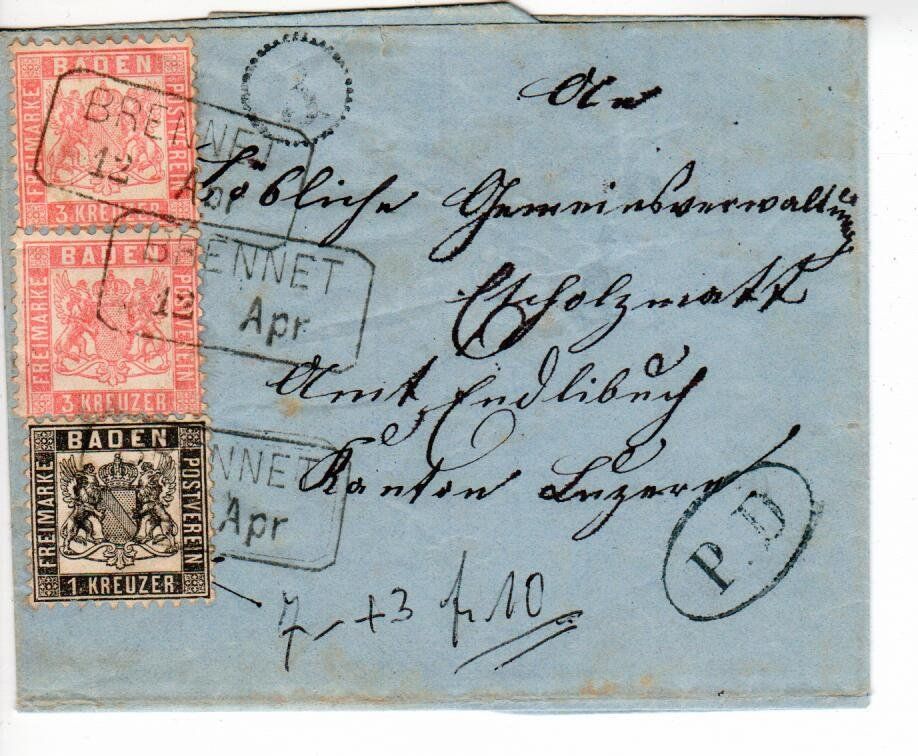 BADEN
FREIMARKE
POSTVEREIN
3 KREUZER
BRENNET
12 Apr
BADEN
FREIMARKE
POSTVEREIN
3 KREUZER
BRENNET
12 Apr
BADEN
FREIMARKE
POSTVEREIN
1 KREUZER
NNET
Apr
An
Löbliche Gemeindsverwaltung
Escholzmatt
Amt Endlibuch
Kanton Luzern
P.D
7 + 3 fr. 10